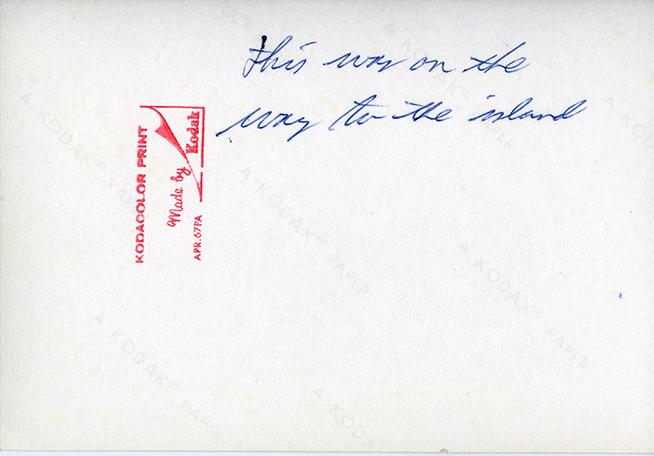 This was on the
way to the island
KODACOLOR PRINT
Made by
Kodak
APR.67PA
A KODAK® PAPER
A KODAK® PAPER
A KODAK® PAPER
A KODAK® PAPER